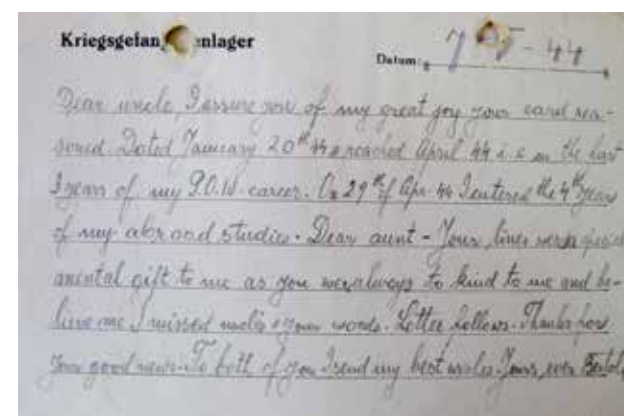 Kriegsgefan enlager
Datum: 7 - 5 - 44
Dear uncle, I assure you of my great joy your card rea-
soned. Dated January 20th 44 reached April 44 i.e in the last
3 years of my P.O.W. career. On 29th of Apr. 44 I entered the 4th year
of my abroad studies. Dear aunt - Your lines were a
mental gift to me as you were always to kind to me and be-
lieve me I missed uncle's & your words. Letter follows. Thanks for
Your good news. To both of you I send my best wishes. Yours, ever